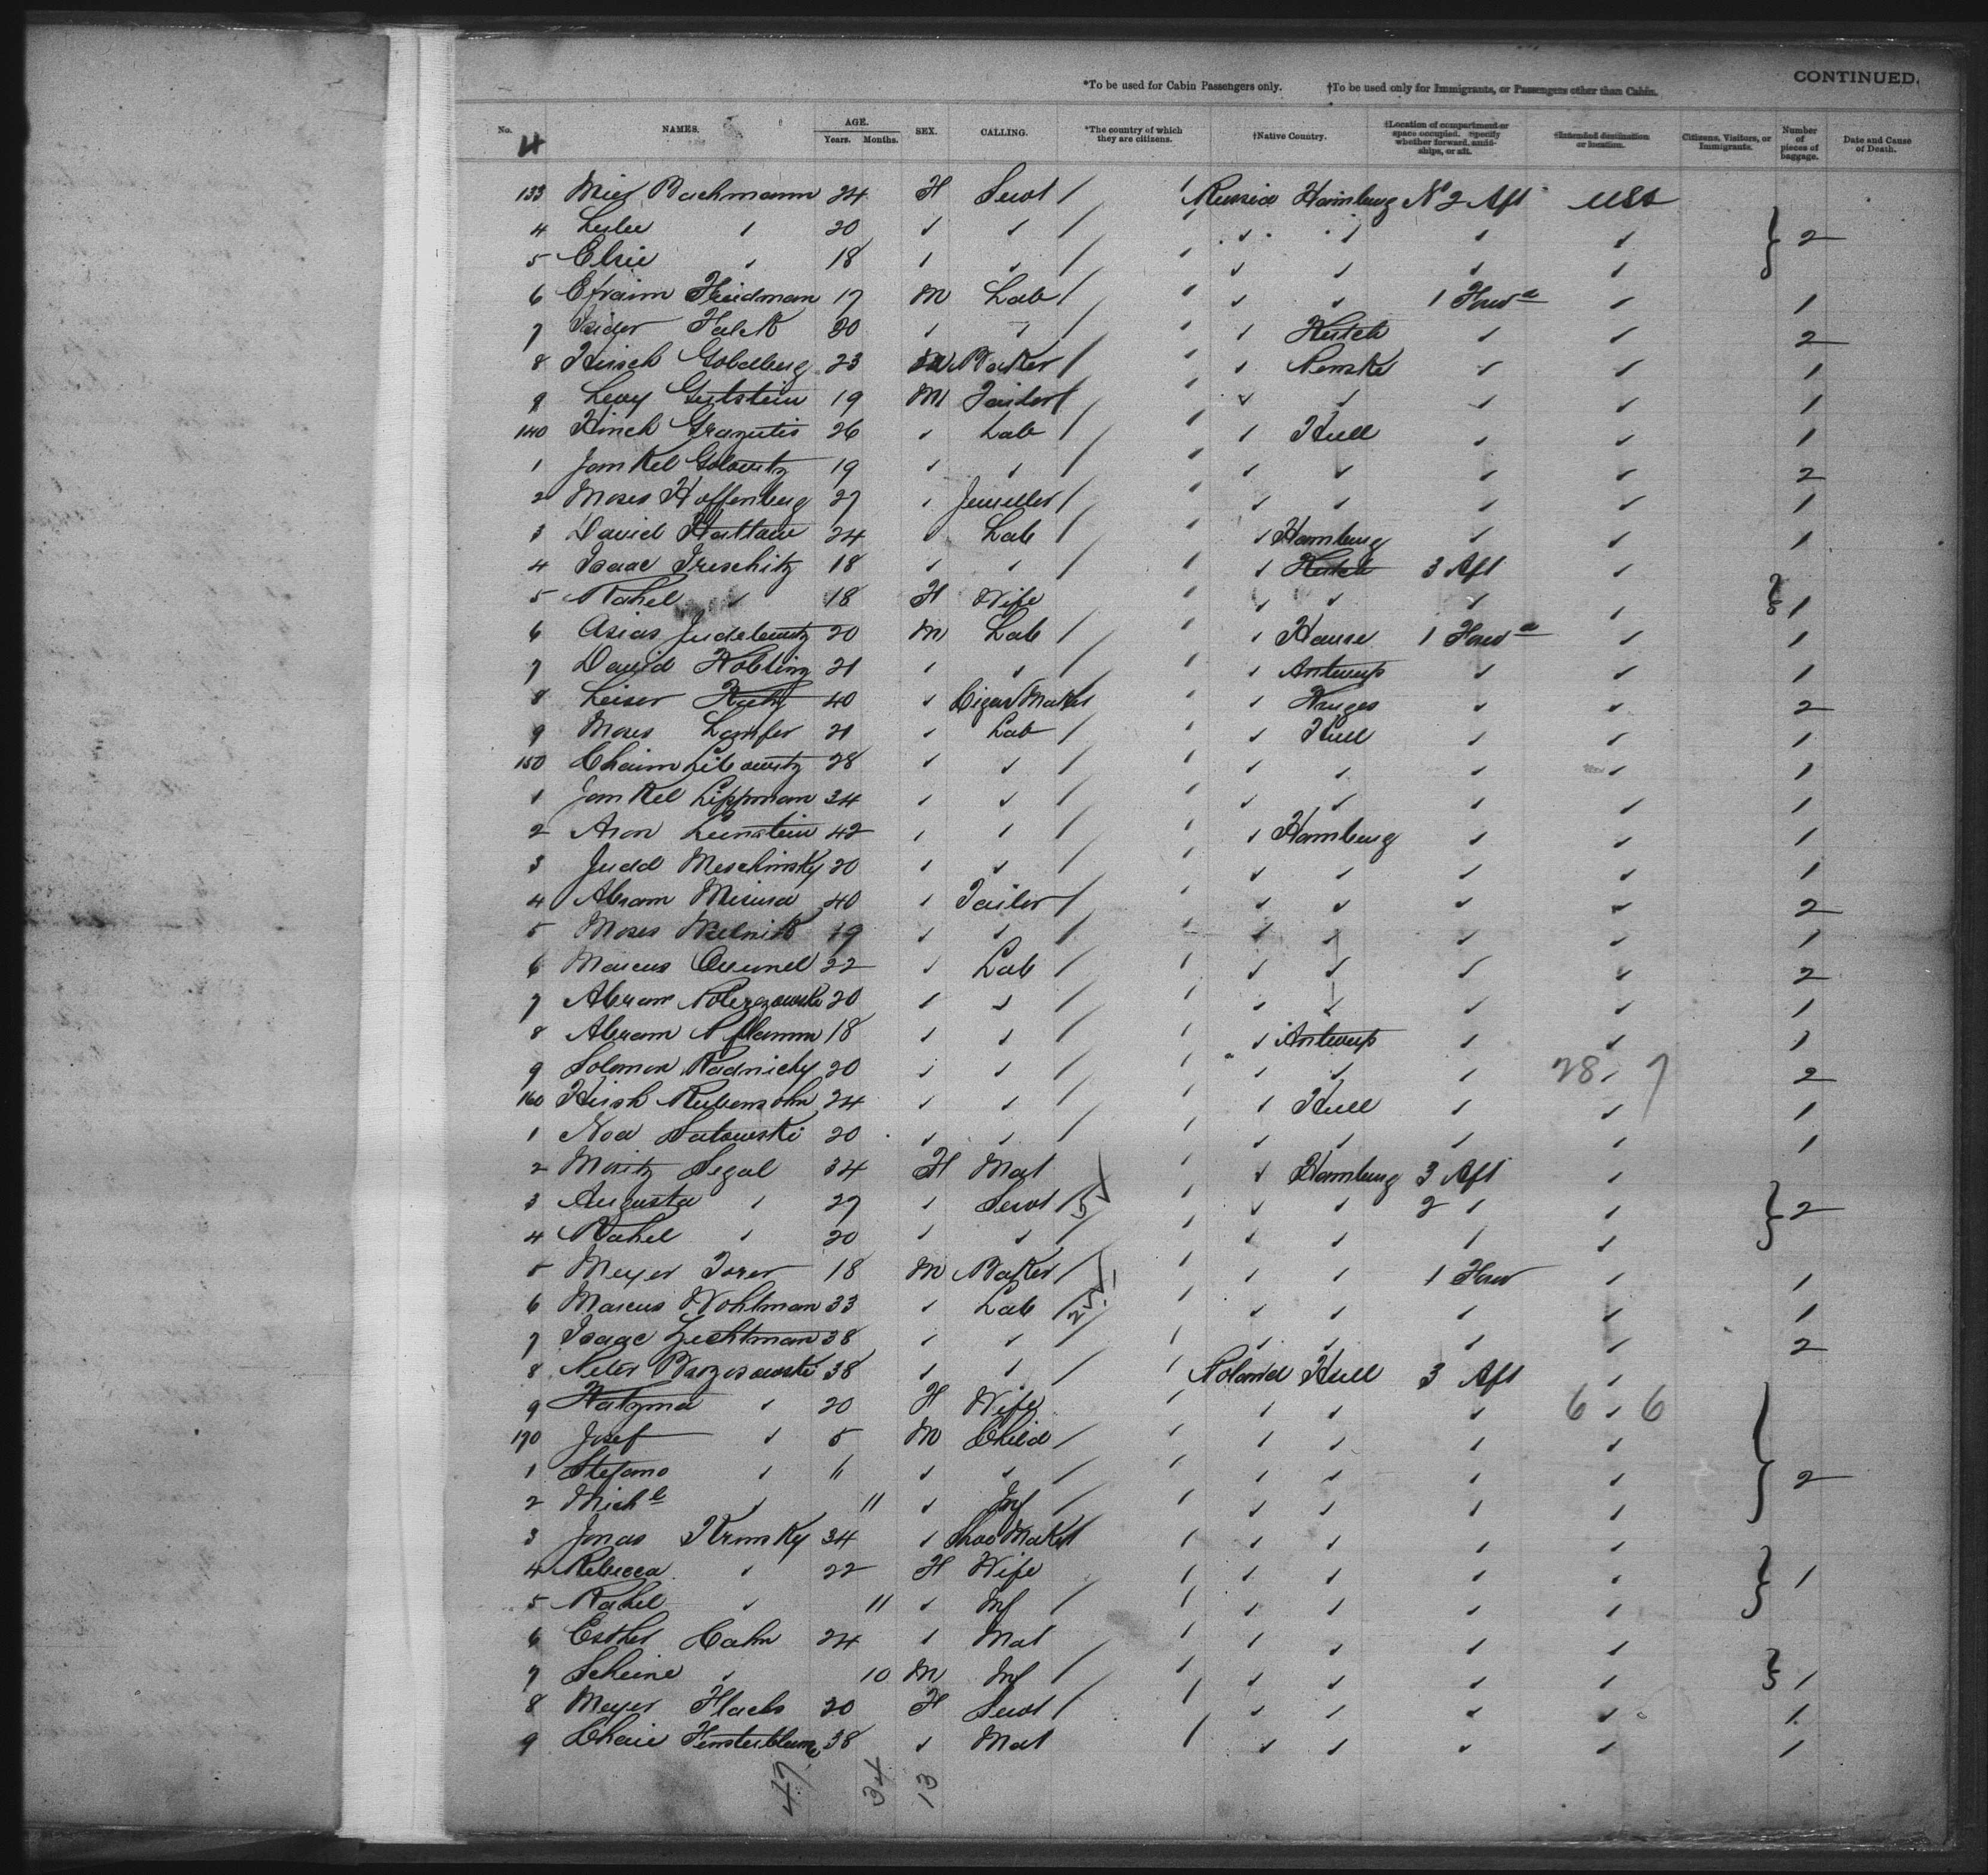 CONTINUED.
*To be used for Cabin Passengers only. †To be used only for Immigrants, or Passengers other than Cabin.
No. NAMES. AGE. Years. Months. SEX. CALLING. *The country of which they are citizens. †Native Country. †Location of compartment or space occupied. Specify whether forward, amidships, or aft. †Intended destination or location. Citizens, Visitors, or Immigrants. Number of pieces of baggage. Date and Cause of Death.
4
133 Bachmann 24 F Servt / Russia Hamburg No 2 Aft USA
4 20 ✓ ✓ / ✓ ✓ ✓ ✓ } 2
5 Elsie ✓ 18 ✓ ✓ / ✓ ✓ ✓ ✓
6 Efraim Freidman 17 M Lab / ✓ ✓ 1 Forwd ✓ 1
7 Isidor 20 ✓ ✓ / ✓ ✓ ✓ 2
8 Hirsch Goldberg 23 M Baker / ✓ ✓ ✓ 1
9 Levy Gutstein 19 M Tailor / ✓ ✓ ✓ ✓ 1
140 Hirsch 26 ✓ Lab / ✓ Hull ✓ ✓ 1
1 Jankel Golowitz 19 ✓ ✓ / ✓ ✓ ✓ ✓ 2
2 Moses Hoffenberg 27 ✓ Jeweller / ✓ ✓ ✓ ✓ 1
3 David 24 ✓ Lab / ✓ Hamburg ✓ ✓ 1
4 Isaac 18 ✓ ✓ / ✓ 3 Aft ✓
5 Rahel ✓ 18 F Wife ✓ ✓ ✓ ✓ } 1
6 Judelowitz 20 M Lab / ✓ 1 Forwd ✓ 1
7 David 21 ✓ ✓ / ✓ Antwerp ✓ ✓ 1
8 Leiser 40 ✓ Cigar Maker ✓ ✓ ✓ 2
9 Moses 21 ✓ Lab / ✓ Hull ✓ ✓ 1
150 Chaim Libowitz 28 ✓ ✓ / ✓ ✓ ✓ ✓ 1
1 Jankel Lippman 34 ✓ ✓ / ✓ ✓ ✓ ✓ 1
2 Aron 42 ✓ ✓ / ✓ Hamburg ✓ ✓ 1
3 Judd Meschinsky 20 ✓ ✓ / ✓ ✓ ✓ ✓ 1
4 Abram 40 ✓ Tailor / ✓ ✓ ✓ ✓ 2
5 Moses Melnik 19 ✓ ✓ / ✓ ✓ ✓ ✓ 1
6 Marcus 22 ✓ Lab / ✓ ✓ ✓ ✓ 2
7 Abram 20 ✓ ✓ / ✓ ✓ ✓ ✓ 1
8 Abram Pflamm 18 ✓ ✓ / ✓ Antwerp ✓ ✓ 1
9 Solomon Radnicky 20 ✓ ✓ / ✓ ✓ ✓ 28 ✓ 7 2
160 Hirsh Rubensohn 24 ✓ ✓ / ✓ Hull ✓ ✓ 1
1 Noa Satowski 20 ✓ ✓ / ✓ ✓ ✓ ✓ 1
2 Moritz Segal 34 F Mat ✓ Hamburg 3 Aft ✓
3 Augusta ✓ 27 ✓ Servt / 5 ✓ ✓ 2 ✓ ✓ } 2
4 Rahel ✓ 20 ✓ ✓ / ✓ ✓ ✓ ✓
5 Meyer 18 M Baker / ✓ ✓ 1 Forw ✓ 1
6 Marcus Wohltman 33 ✓ Lab / 25 ✓ ✓ ✓ ✓ 1
7 Isaac Zuchtman 38 ✓ ✓ / ✓ ✓ ✓ ✓ 2
8 Peter 38 ✓ ✓ / Poland Hull 3 Aft ✓
9 ✓ 20 F Wife ✓ ✓ ✓ 6 ✓ 6
170 Josef ✓ 5 M Child / ✓ ✓ ✓ ✓
1 Stefano ✓ ✓ ✓ / ✓ ✓ ✓ ✓ } 2
2 Michl ✓ 11 ✓ Inf / ✓ ✓ ✓ ✓
3 Jonas Krimsky 34 ✓ Shoe Maker ✓ ✓ ✓ ✓
4 Rebecca ✓ 22 F Wife ✓ ✓ ✓ ✓ } 1
5 Rahel ✓ 11 ✓ Inf / ✓ ✓ ✓ ✓
6 Esther Cahn 24 ✓ Mat ✓ ✓ ✓ ✓
7 Scheine ✓ 10 M Inf / ✓ ✓ ✓ ✓ } 1
8 Meyer Flachs 20 F Servt / ✓ ✓ ✓ ✓ 1
9 Chaie Fensterblum 38 ✓ Mat ✓ ✓ ✓ ✓ 1
47 34 13